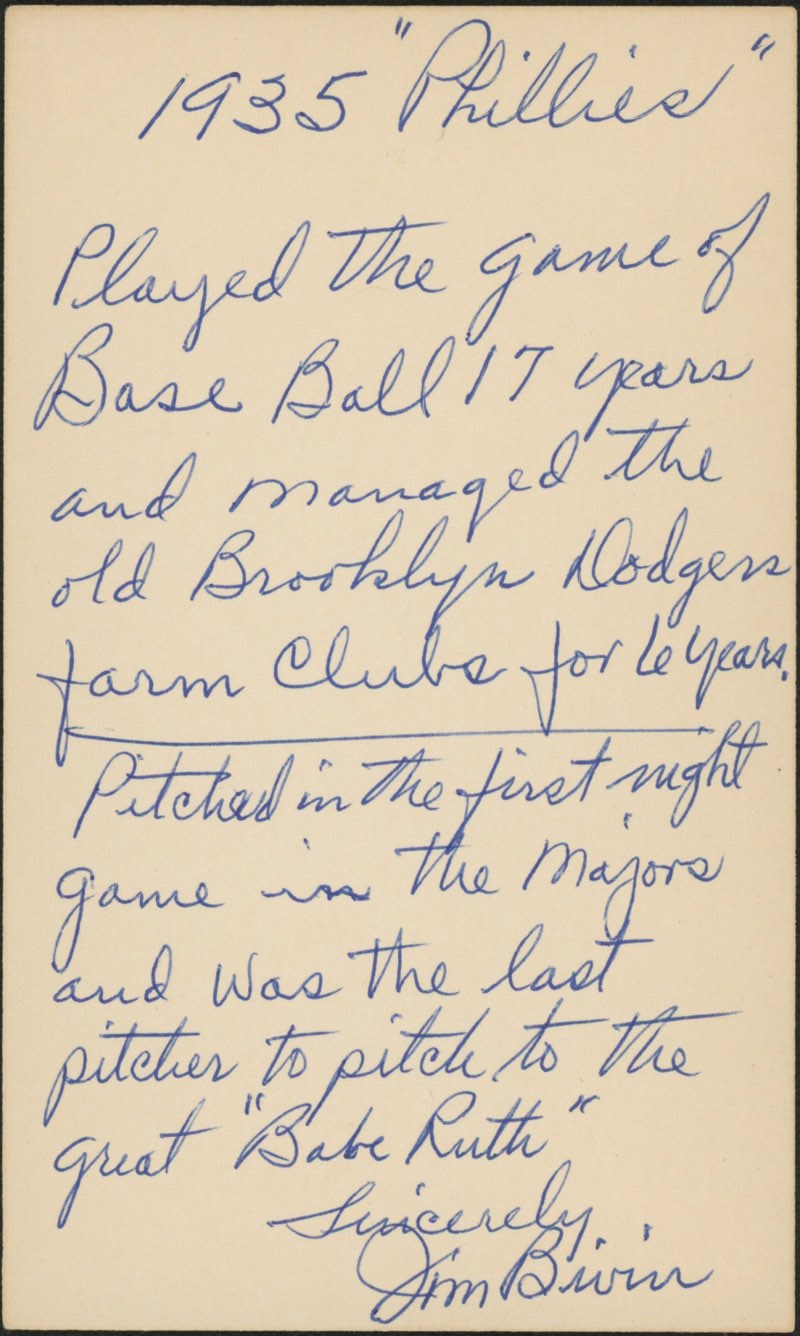 1935 "Phillies"
Played the game of
Base Ball 17 years
and managed the
old Brooklyn Dodgers
farm Clubs for 6 years.
Pitched in the first night
game in the Majors
and was the last
pitcher to pitch to the
great "Babe Ruth"
Sincerely
Jim Bivin